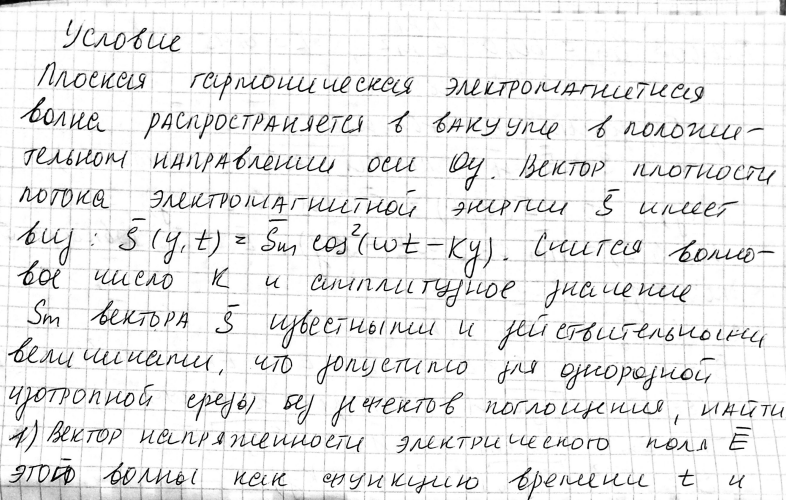 Условие
Плоская гармоническая электромагнитная
волна распространяется в вакууме в положи-
тельном направлении оси Oy. Вектор плотности
потока электромагнитной энергии S̄ имеет
вид: S̄(y,t) = S̄m cos²(ωt-ky). Считая волно-
вое число K и амплитудное значение
Sm вектора S̄ известными и действительными
величинами, что допустимо для однородной
изотропной среды без эффектов поглощения, найти
1) Вектор напряженности электрического поля Ē
этой волны как функцию времени t и